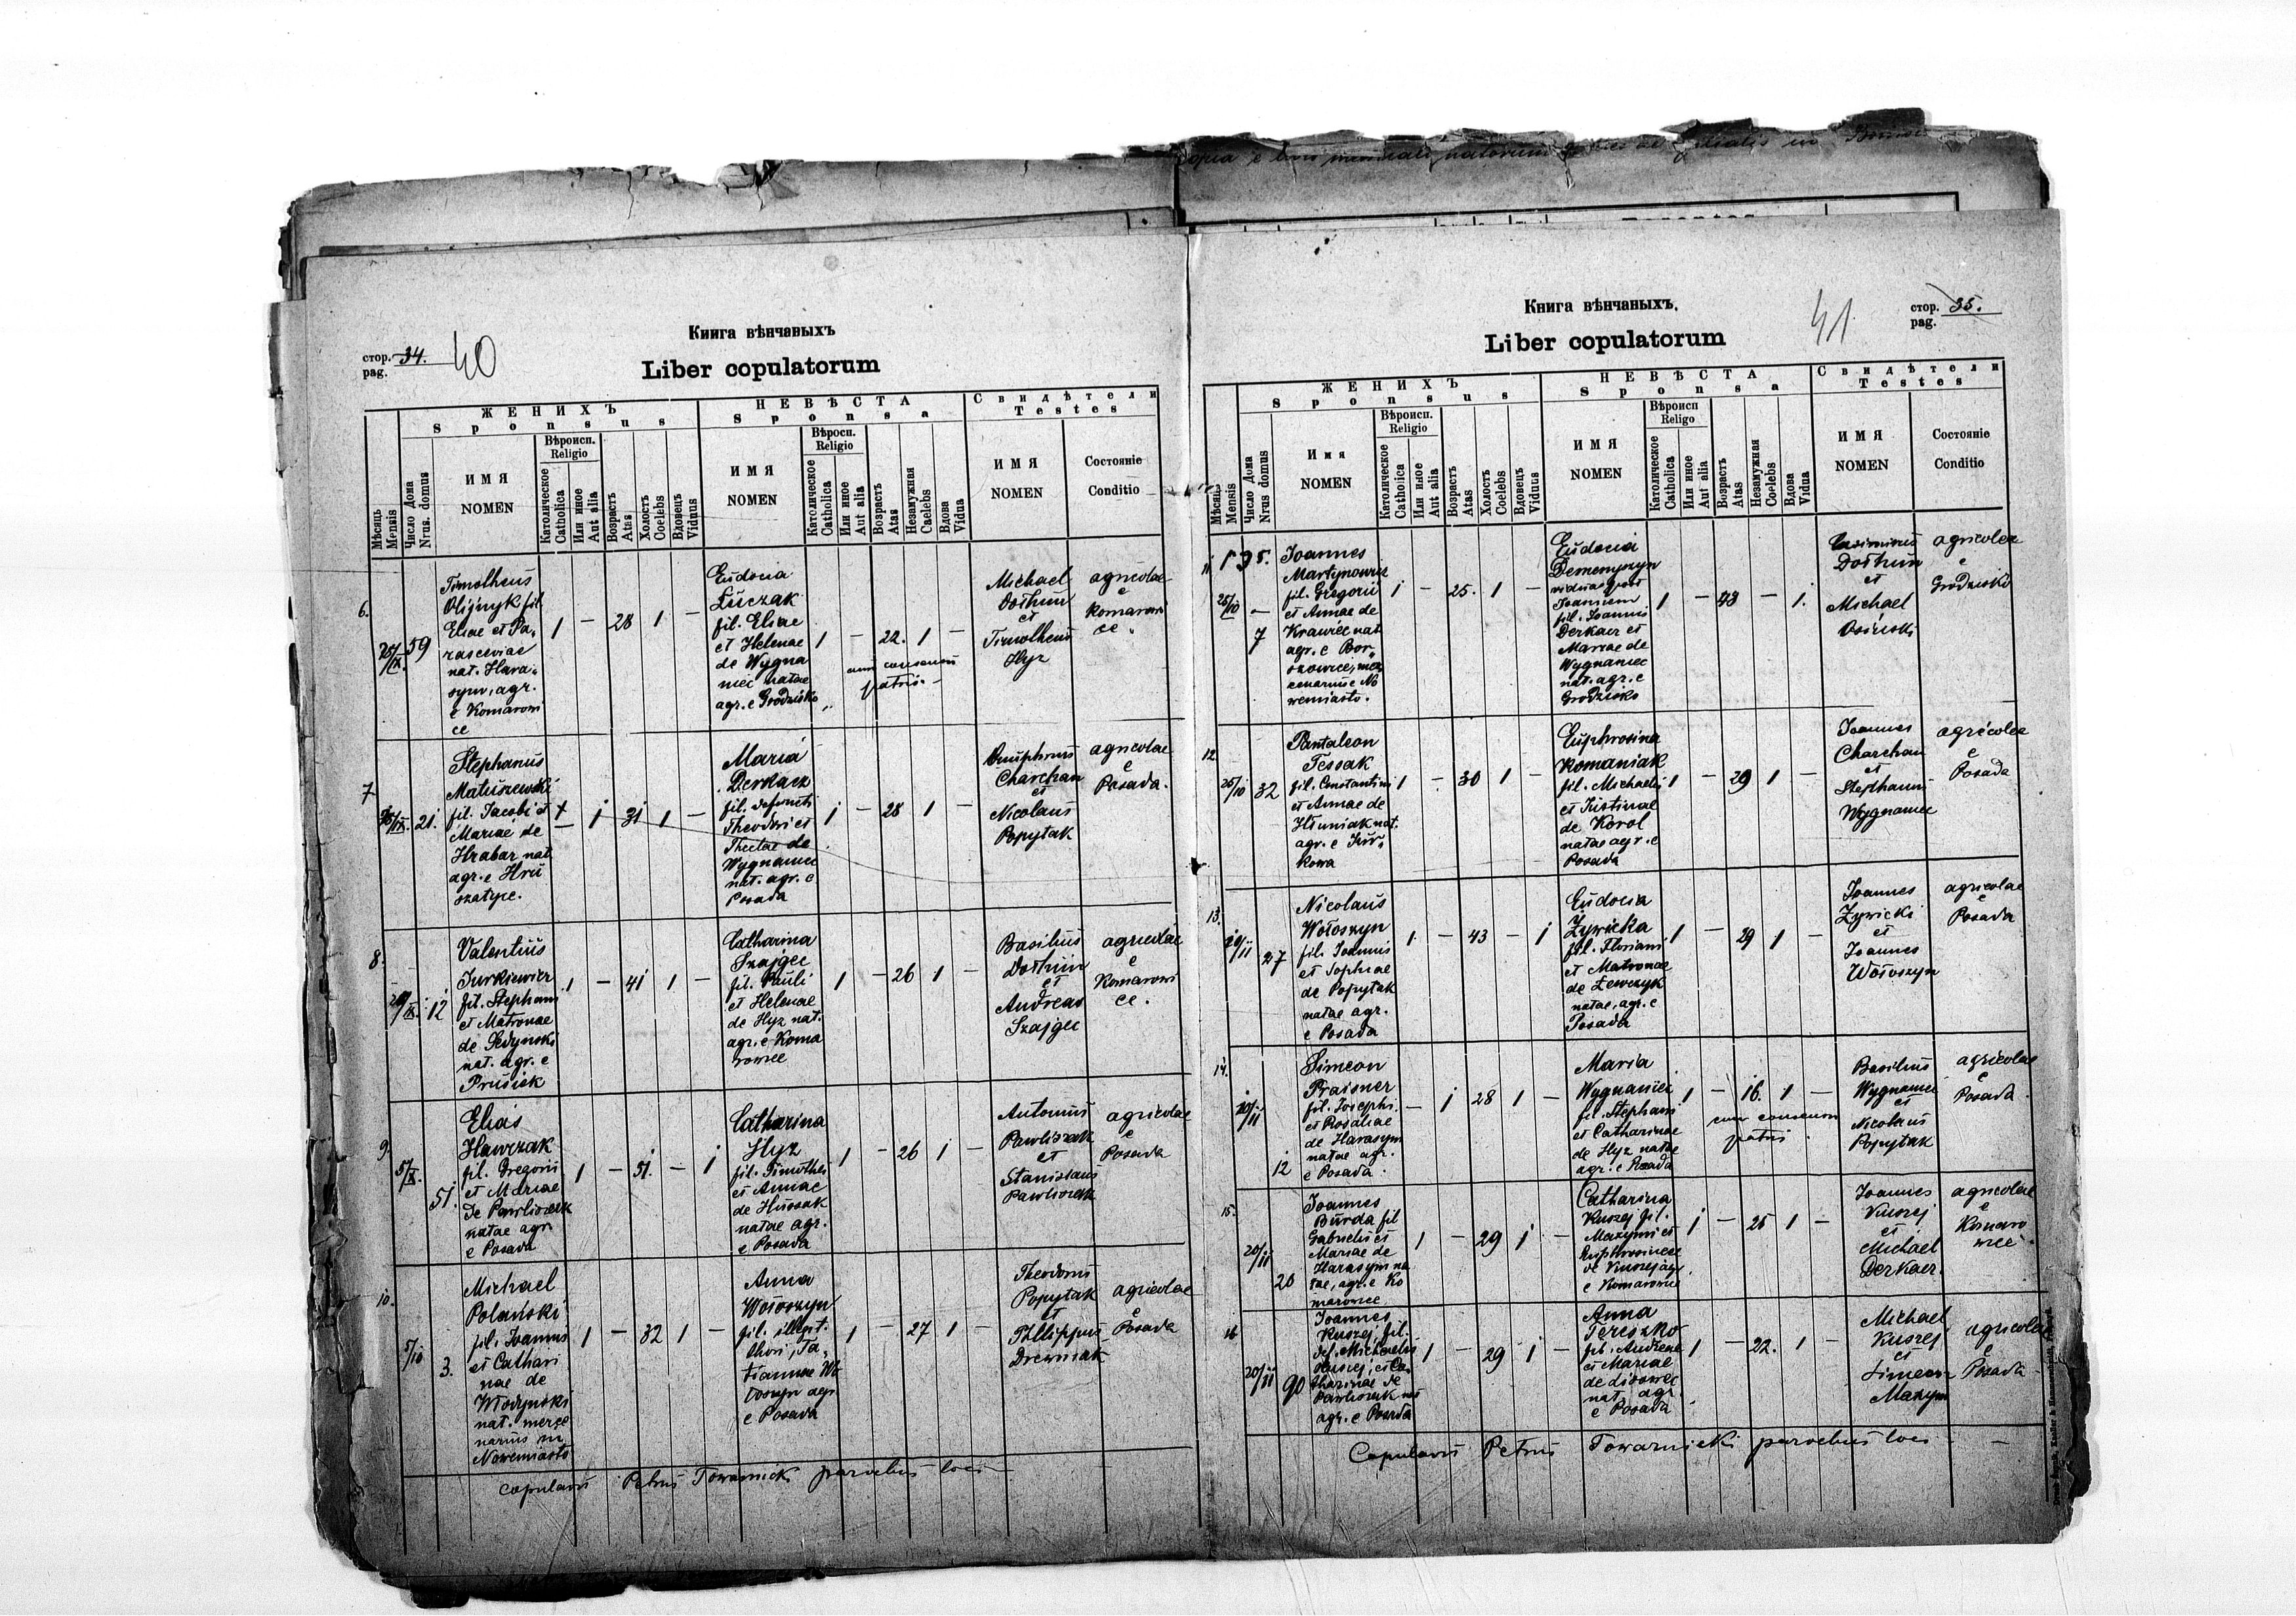 Книга вѣнчаныхъ
стор. 34.
pag.
40
Liber copulatorum
ЖЕНИХЪ
Sponsus
НЕВѢСТА
Sponsa
Свидѣтели
Testes
Мѣсяць
Mensis
Число Дома
Nrus. domus
ИМЯ
NOMEN
Вѣроисп.
Religio
Католическое
Catholica
Или иное
Aut alia
Возрастъ
Atas
Холостъ
Coelebs
Вдовецъ
Viduus
ИМЯ
NOMEN
Вѣросп.
Religio
Католическое
Catholica
Или иное
Aut alia
Возрастъ
Atas
Незамужная
Caelebs
Вдова
Vidua
ИМЯ
NOMEN
Состоянie
Conditio
6.
59
Timotheus
Olijnyk fil.
Eliae et Pa„
rasceviae
nat. Hara„
sym, agr.
e Komarowi
ce
1 – 28 1 –
Eudocia
Łuczak
fil. Eliae
et Helenae
de Wygna
niec natae
agr. e Grodzisko
1 – 22. 1 –
cum consensu
patris. –
Michael
Dothun
et
Timotheus
Hyz
agricolae
e
Komarowi
ce.
7
21.
Stephanus
Matuszewski
fil. Jacobi et
Mariae de
Hrabar nat.
agr. e Hru
szatyce.
1 31 1 –
Maria
Derkacz
fil. defuncti
Theodori et
Theclae de
Wygnaniec
nat. agr. e
Posada
1 – 28 1 –
Onuphrius
Charchan
et
Nicolaus
Popytak
agricolae
e
Posada.
8.
12
Valentius
Jurkiewicz
fil. Stephani
et Matronae
de Sedynski
nat. agr. e
Prusiek
1 – 41 1 –
Catharina
Szajgec
fil. Pauli
et Helenae
de Hyz nat.
agr. e Koma
rowice
1 – 26 1 –
Basilius
Dothun
et
Andreas
Szajgec
agricolae
e
Komarowi
ce.
9.
51.
Elias
Hawrzak
fil. Gregorii
et Mariae
de Pawliszak
natae agr.
e Posada
1 – 51. – 1
Catharina
Hyz
fil. Timothei
et Annae
de Hussak
natae agr.
e Posada
1 – 26 1 –
Antonius
Pawliszak
et
Stanislaus
Pawliszak
agricolae
e
Posada
10.
5/10
3.
Michael
Polański
fil. Joannis
et Cathari
nae de
Włodynski
nat. merce
narius in
Nowemiasto
1 – 32 1 –
Anna
Wołoszyn
fil. illegit.
thori, Ta„
tiannae Wo
łoszyn agr.
e Posada
1 – 27 1 –
Theodorus
Popytak
et
Phllippus
Drewniak
agricolae
e
Posada
Copulavit Petrus Towarnicki parochus loci
Книга вѣнчаныхъ.
стор. 35.
pag.
41
Liber copulatorum
ЖЕНИХЪ
Sponsus
НЕВѢСТА
Sponsa
Свидѣтели
Testes
Мѣсяць
Mensis
Число Дома
Nrus domus
Имя
NOMEN
Вѣроисп.
Religio
Католическое
Catholica
Или иное
Aut alia
Возрастъ
Atas
Холостъ
Coelebs
Вдовецъ
Viduus
ИМЯ
NOMEN
Вѣроисп
Religo
Католическое
Catholica
Или иное
Aut alia
Возрастъ
Atas
Незамужная
Coelebs
Вдова
Vidua
ИМЯ
NOMEN
Состоянie
Conditio
11
25/10
7
Joannes
Martynowicz
fil. Gregorii
et Annae de
Krawiec nat.
agr. e Bor„
szowice, mer
cenarius e No
wemiasto.
1 – 25. 1 –
Eudocia
Demenyszyn
vidua post
Joannem
fil. Joannis
Derkacz et
Mariae de
Wygnaniec
nat. agr. e
Grodzisko
1 – 43 – 1.
Casimirus
Dothun
et
Michael
Osiński
agricolae
e
Grodzisko
12
25/10
32
Pantaleon
Tessak
fil. Constantini
et Annae de
Iłuniak nat.
agr. e Jur„
kowa
1 – 30 1 –
Euphrosina
Romaniak
fil. Michaelis
et Justinae
de Korol
natae agr. e
Posada
1 – 29 1 –
Joannes
Charchan
et
Stephanus
Wygnaniec
agricolae
e
Posada
13.
20/11
27
Nicolaus
Wołoszyn
fil. Joannis
et Sophiae
de Popytak
natae agr.
e Posada
1. – 43 – 1
Eudocia
Zywicka
fil. Floriani
et Matronae
de Lewczyk
natae, agr. e
Posada
1 – 29 1 –
Joannes
Zywicki
et
Joannes
Wołoszyn
agricolae
e
Posada
14.
20/11
12
Simeon
Praisner
fil. Josephi
et Rosaliae
de Harasym
natae agr.
e Posada.
– 1 28 1 –
Maria
Wygnaniec
fil. Stephani
et Catharinae
de Hyz natae
agr. e Posada
1 – 16. 1 –
cum consensu
patris.
Basilius
Wygnaniec
et
Nicolaus
Popytak
agricolae
e
Posada
15.
20/11
20
Joannes
Burda fil
Gabrielis et
Mariae de
Harasym na
tae, agr. e Ko
marowice
1 – 29 1 –
Catharina
Kuszej fil.
Maxymi et
Euphrosinae
de Kuszej agr.
e Komarowice
1 – 25 1 –
Joannes
Kuszej
et
Michael
Derkacz.
agricolae
e
Komaro
wice.
16
20/11
90
Joannes
Kuszej, fil.
def. Michaelis
Kuszej, et Ca„
tharinae de
Pawliszak nat
agr. e Posada
1 – 29 1 –
Anna
Tereszko
fil. Andreae
et Mariae
de Lisowiec
nat. agr.
e Posada
1 – 22. 1 –
Michael
Kuszej
et
Simeon
Maxym
agricolae
e
Posada
Copulavit Petrus Towarnicki parochus loci –